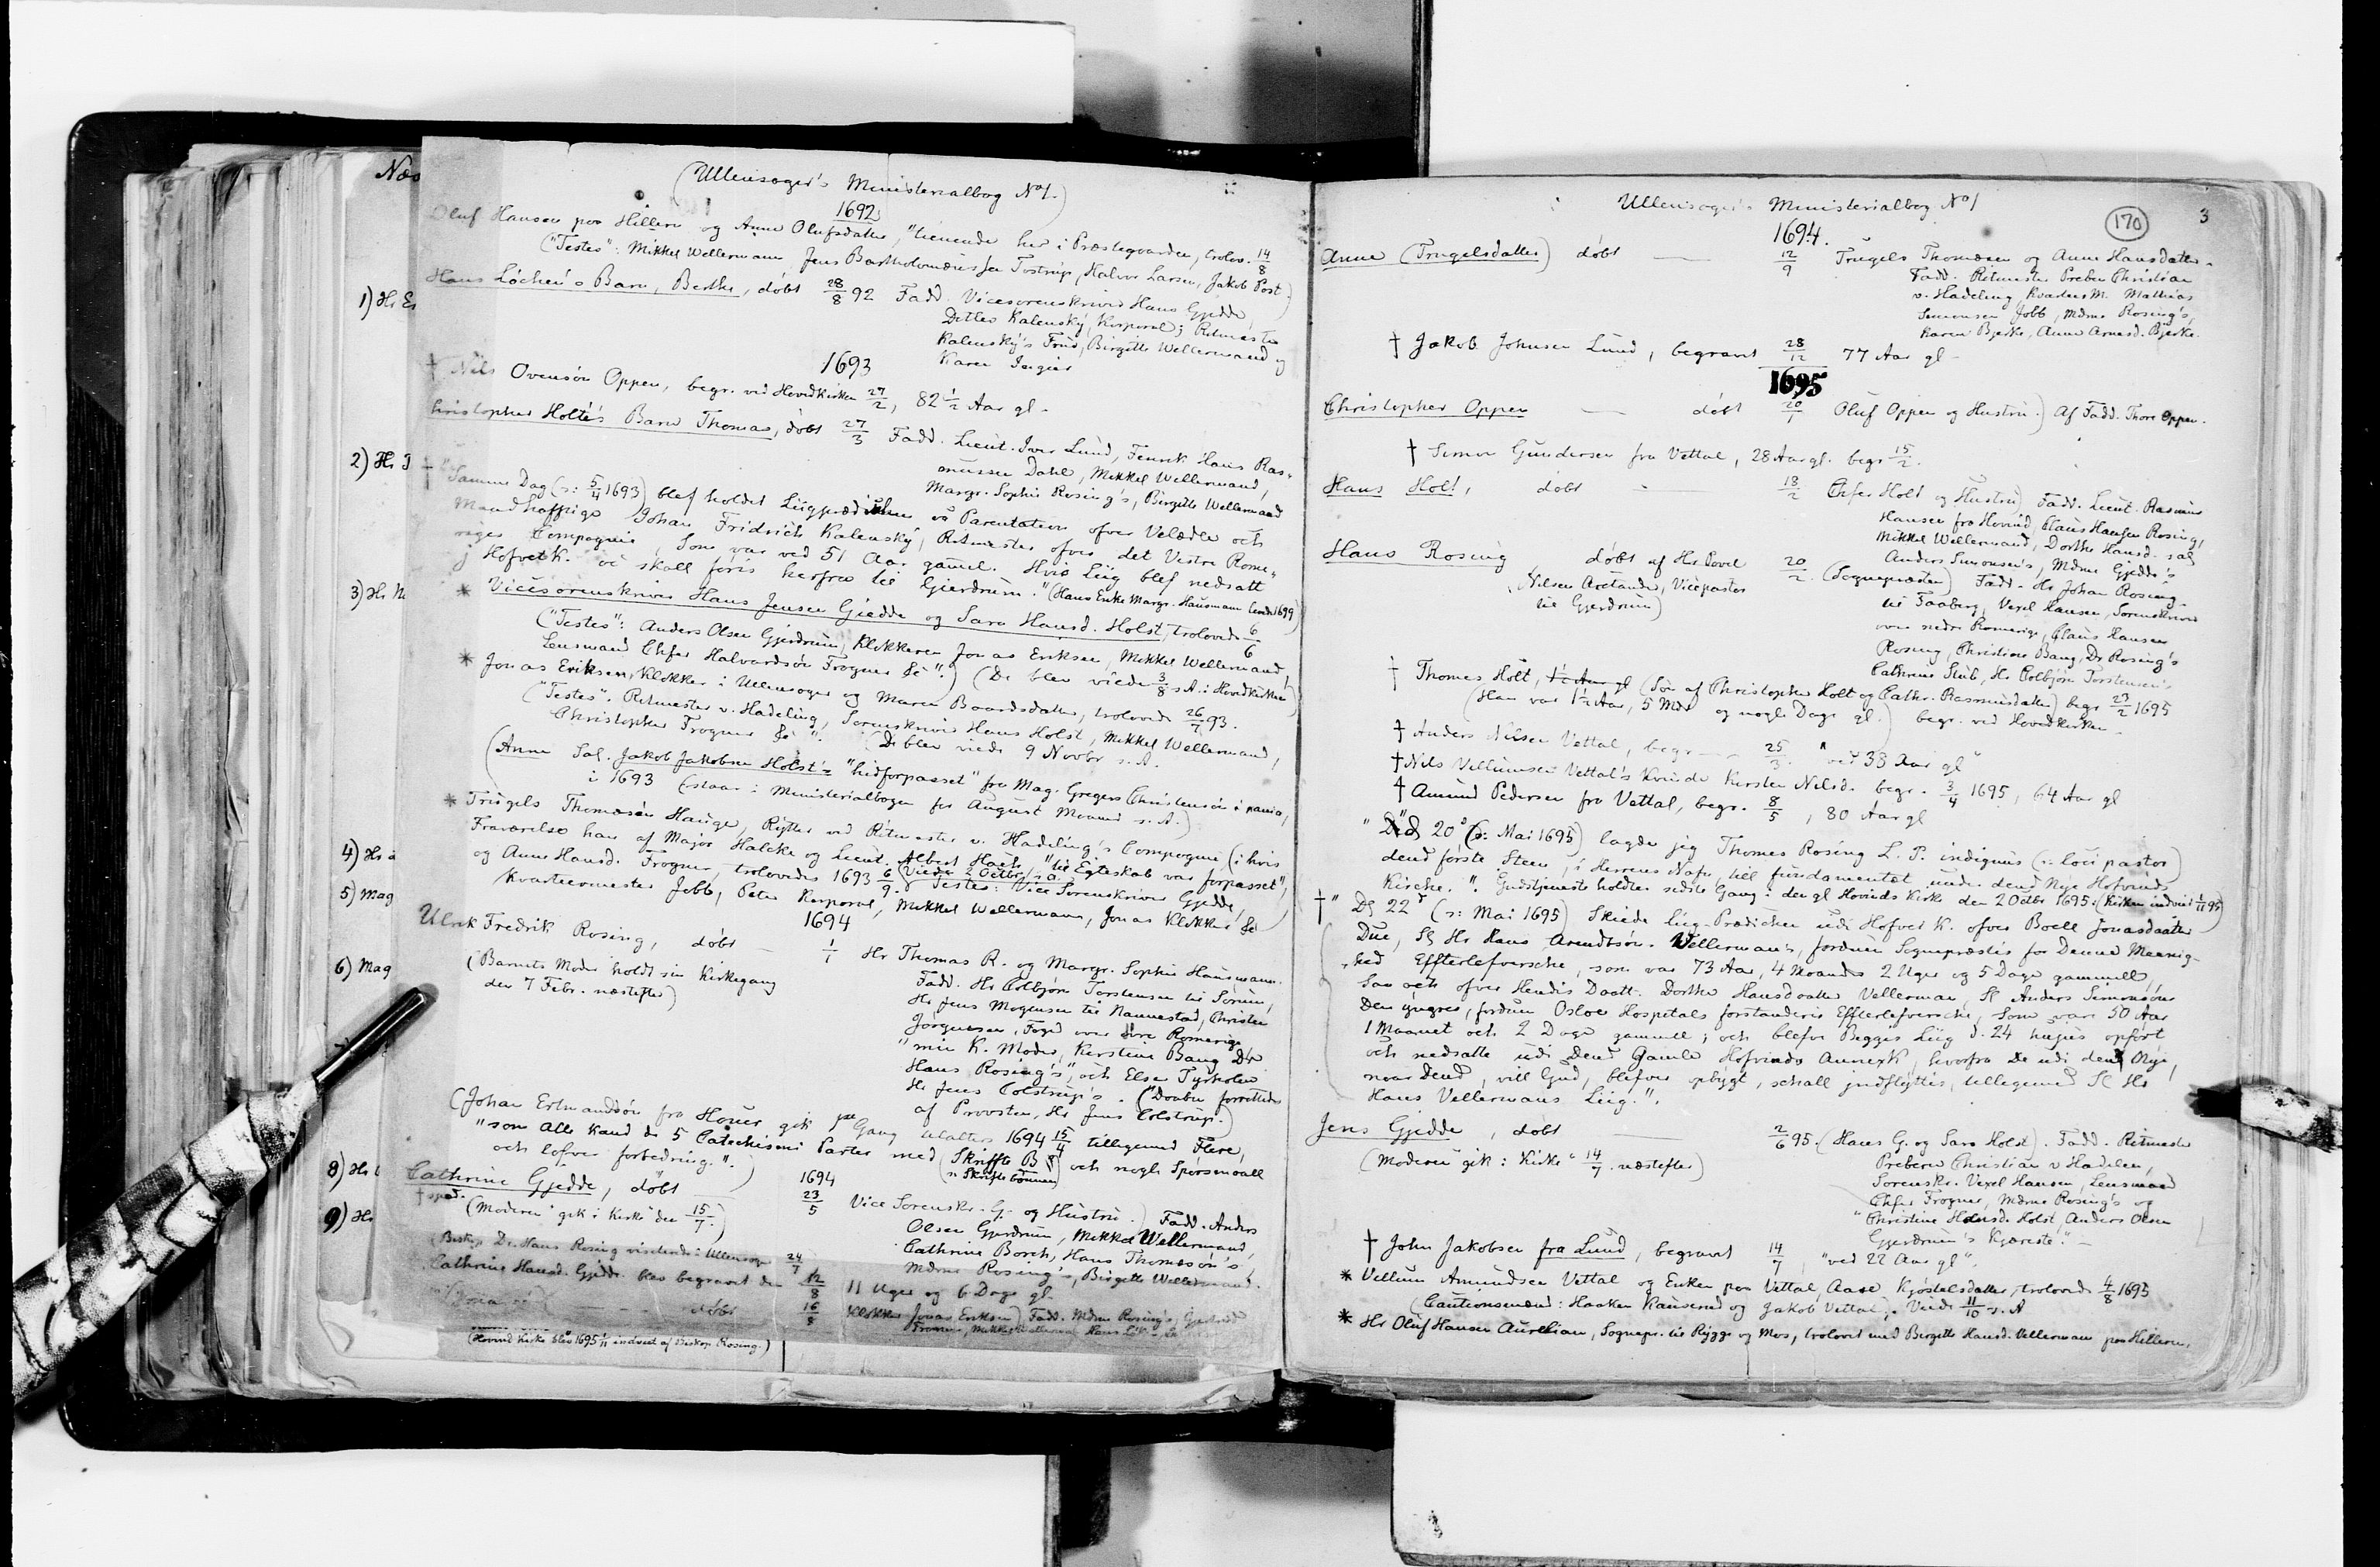 Næs
1) Hr. Er
2) Hr. J
3) Hr. Ni
4) Hr. a
5) Mag
6) Mag
8) Hr. C
9) Hr.
(Ullensager's Ministerialbog No 1.)
1692
Oluf Hansen paa Hillern og Anne Olufsdatter, "tienende her i Præstegaarden, trolov. 14/8
("Testes": Mikkel Wellermann, Jens Bartholomæussen Tostrup, Halvor Larsen, Jakob Post.)
Hans Løchen's Barn, Berthe, døbt 28/8 92 Fadd. Vicesorenskriver Hans Gjedde,
Detlev Kalensky, Korporal; Ritmester
Kalensky's Frue, Birgitte Wellermand og
Karen Jngier
1693
† Nils Ovensøn Oppen, begr. ved Hovedkirken 27/2, 82 1/2 Aar gl.
Christopher Holte's Barn Thomas, døbt 27/3 Fadd. Lieut. Iver Lund, Fenrik Hans Ras-
mussen Dahl, Mikkel Wellermand,
Margr. Sophie Rosing's, Birgitte Wellermand
† "Samme Dag (ɔ: 5/4 1693) blef holdet Liigprædichen oc Parentation ofver Velædle och
Mandhafftige Johan Fridrich Kalensky, Ritmester ofver det Vestre Rome-
riges Compagnie, Som var ved 51 Aar gammel. Hvis Liig blef nedsatt
j Hofvet K. oc skall føris herfra til Gierdrum." (Hans Enke Margr. Hausmann levde 1699)
* Vicesorenskriver Hans Jensen Giedde og Sara Hansd. Holst, trolovede 6/6
("Testes": Anders Olsen Gjerdrum, Klokkeren Jonas Eriksen, Mikkel Wellermand,
Lensmand Chfer Halvardsøn Frogner &c".) (De blev viede 3/8 s. A. i Hovedkirken)
* Jonas Eriksen, Klokker i Ullensager og Maren Baardsdatter, trolovede 26/7 93.
("Testes". Ritmester v. Hadeling, Sorenskriver Hans Holst, Mikkel Wellermand,
Christopher Frogner &c". (De blev viede 9 Novbr s. A.
(Anne Sal. Jakob Jakobsen Holst's "hidforpasset" fra Mag. Gregers Christensøn i
i 1693 (staar i Ministerialbogen for August Maaned s. A.)
* Trugels Thomæsøn Hauge, Rytter ved Ritmester v. Hadeling's Compagnie (i hvis
Fraværelse han af Major Halcke og Lieut. Albert Hach, "til Egteskab var forpasset",
og Anne Hansd. Frogner, trolovedes 1693 6/9. (Viede 2 Octbr s. a. Testes: Vice Sorenskriver Gjedde,
Kvarteermester Jobb, Peter Korporal, Mikkel Wellermann, Jonas Klokker &c
1694
Ulrik Fredrik Rosing, døbt — 1/1 Hr Thomas R. og Margr. Sophie Hausmann.
(Barnets Moder holdt sin Kirkegang
den 7 Febr. næstefter)
Fadd. Hr Colbjørn Torstensen til Sørum,
Hr Jens Mogensen til Nannestad, Christen
Jørgensen, Foged over Øvre Romerige
"min K. Moder, Kirstine Bang Dr
Hans Rosing's", och Else Tyrholm
Hr Jens Colstrup's. (Daaben forrettedes
af Provsten, Hr Jens Colstrup.)
(Johan Erlmandsøn fra Houer gik 1ste Gang til alters 1694 15/4 tilligemed Flere,
"som alle kand de 5 Catechismi Parter med (Skriffte B. ɔ: Skrifte bønnen) och nogle Spørsmaall
och lofver forbedring.".)
1694
Cathrine Gjedde, døbt 23/5 Vice Sorenskr. G. og Hustru.) Fadd. Anders
† spæd. (Moderen gik i Kirke den 15/7.)
Olsen Gjerdrum, Mikkel Wellermand,
Cathrine Borch, Hans Thomesøn's,
Mdme Rosing's, Birgitte Wellermand.
(Biskop Dr. Hans Rosing visiterede i Ullensager 24/7
Cathrine Hansd. Gjedde blev begravet den 12/8 11 Uger og 6 Dage gl.
døbt 16/8 Klokker Jonas Eriksen) Fadd. Mdme Rosing's,
(Hovind Kirke blev 1695 1/11 indviet af Biskop Rosing.)
Ullensager's Ministerialbog No 1
170
3
1694.
Anne (Trugelsdatter) døbt — 12/9 Trugels Thomæsen og Anne Hansdatter.
Fadd. Ritmester Preben Christian
v. Hadeling, KvarterM. Mathias
Simonsen Jobb, Mdme Rosing's,
Karen Bjerke, Anne Arnesd. Bjerke.
† Jakob Johnsen Lund, begravet 28/12 77 Aar gl.
1695
Christopher Oppen — døbt 20/1 Oluf Oppen og Hustru.) Af Fadd. Thore Oppen.
† Simon Gundersen fra Vettal, 28 Aar gl. begr 15/2.
Hans Holt, døbt — 18/2 Chfer Holt og Hustru, Fadd. Lieut. Rasmus
Hansen fra Hovind, Claus Hansen Rosing,
Mikkel Wellermand, Dorthe Hansd. sal.
Anders Simonsen's, Mdme Gjedde's
Hans Rosing døbt af Hr. Povel 20/2. (Sognepræsten) Fadd. Hr Johan Rosing
Nilsen Arctander, Vicepastor
til Gjerdrum)
til Faaberg, Vexel Hansen, Sorenskriver
over nedre Romerige, Claus Hansen
Rosing, Christine Bang, Dr Rosing's
Cathrine Stub, Hr. Colbjørn Torstensen's
† Thomes Holt, 1 1/2 Aar gl (Søn af Christopher Holt og Cathr. Rasmusdatter) begr 23/2 1695
(Han var 1 1/2 Aar, 5 Mdr og nogle Dage gl.) begr. ved Hovedkirken.
† Anders Nilsen Vettal, begr — 25/3. "ved 38 Aar gl"
† Nils Vellumsen Vettal's Kvinde Kirsten Nilsd. begr. 3/4 1695, 64 Aar gl
† Amund Pedersen fra Vettal, begr. 8/5, 80 Aar gl
"Dend 20de (ɔ: Mai 1695) lagde jeg Thomes Rosing L. P. indignus (ɔ: loci pastor)
dend første Steen, i Herrens Nafn, till fundamentet under dend Nye Hofvinds
Kirche.". Gudstjeneste holdtes sidste Gang i den gl Hovinds Kirke den 2 Octbr 1695. (Kirken indviet 1/11 95)
†" D. 22de (ɔ: Mai 1695) Skiede Liig-Prædichen udi Hofvet K. ofver Boell Jonasdaatter
Due, Sl Hr Hans Arendtsøn. Wellerman's, fordum Sognepræstis for Denne Meenig-
hed Effterlefversche, som var 73 Aar, 4 Maaneder 2 Uger og 5 Dage gammell,
Saa och ofver Hendis Daatt. Dorthe Hansdaatter Vellerman, Sl Anders Simonsøns
Den yngres, fordum Osloe Hospitals forstanderis Effterlefversche, Som var 50 Aar
1 Maanet och 2 Dage gammell; och blefve Begges Liig d. 24 hujus opført
och nedsatte udi Dend Gamle Hofvinds AnnexK, hvorfra De udi dend Nye,
naar Dend, vill Gud, blefver opbygt, schall jndflyttis, tillegemed Sl Hr
Hans Vellermans Liig.".
Jens Gjedde, døbt — 2/6 95. (Hans G. og Sara Holst). Fadd. Ritmester
(Moderen "gik i Kirke" 14/7 næstefter)
Prebern Christian v Hadelen,
Sorenskr. Vexel Hansen, Lensmand
Chfer Frogner, Mdme Rosing's og
"Christine Hansd. Holst, Anders Olsen
Gjerdrum's Kjæreste."
† John Jakobsen fra Lund, begravet 14/7, "ved 22 Aar gl".
* Vellum Amundsen Vettal og Enken paa Vettal, Aase Kjøstelsdatter, trolovede 4/8 1695
(Cautionsmænd: Haaken Kauserud og Jakob Vettal). Viede 11/10 s. A
* Hr Oluf Hansen Aurelian, Sognepr. til Rygge og Mos, trolovet med Birgitte Hansd. Vellerman paa Hillern,